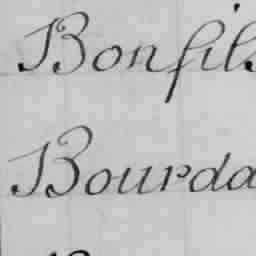 Bonfils
Bourda